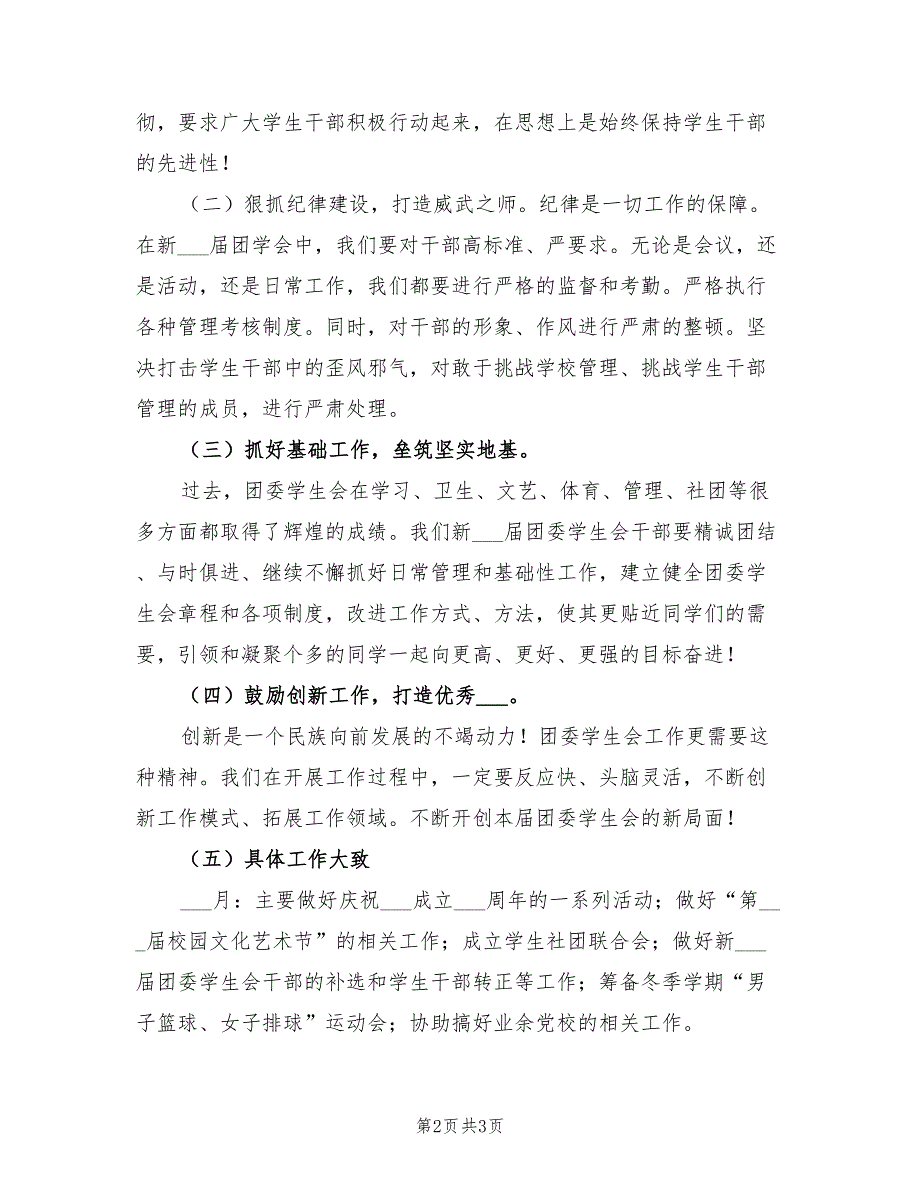 彻，要求广大学生干部积极行动起来，在思想上是始终保持学生干部
的先进性！
（二）狠抓纪律建设，打造威武之师。纪律是一切工作的保障。
在新___届团学会中，我们要对干部高标准、严要求。无论是会议，还
是活动，还是日常工作，我们都要进行严格的监督和考勤。严格执行
各种管理考核制度。同时，对干部的形象、作风进行严肃的整顿。坚
决打击学生干部中的歪风邪气，对敢于挑战学校管理、挑战学生干部
管理的成员，进行严肃处理。
（三）抓好基础工作，垒筑坚实地基。
过去，团委学生会在学习、卫生、文艺、体育、管理、社团等很
多方面都取得了辉煌的成绩。我们新___届团委学生会干部要精诚团结
、与时俱进、继续不懈抓好日常管理和基础性工作，建立健全团委学
生会章程和各项制度，改进工作方式、方法，使其更贴近同学们的需
要，引领和凝聚个多的同学一起向更高、更好、更强的目标奋进！
（四）鼓励创新工作，打造优秀___。
创新是一个民族向前发展的不竭动力！团委学生会工作更需要这
种精神。我们在开展工作过程中，一定要反应快、头脑灵活，不断创
新工作模式、拓展工作领域。不断开创本届团委学生会的新局面！
（五）具体工作大致
___月：主要做好庆祝___成立___周年的一系列活动；做好“第__
_届校园文化艺术节”的相关工作；成立学生社团联合会；做好新___
届团委学生会干部的补选和学生干部转正等工作；筹备冬季学期“男
子篮球、女子排球”运动会；协助搞好业余党校的相关工作。
第2页共3页